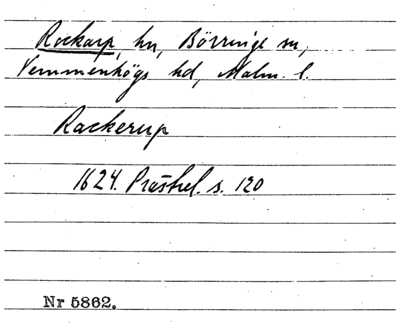 Rockarp, hn, Börringe sn,
Vemmenhögs hd, Malm. l.
Rackerup
1624. Prästrel. s. 120
Nr 5862.